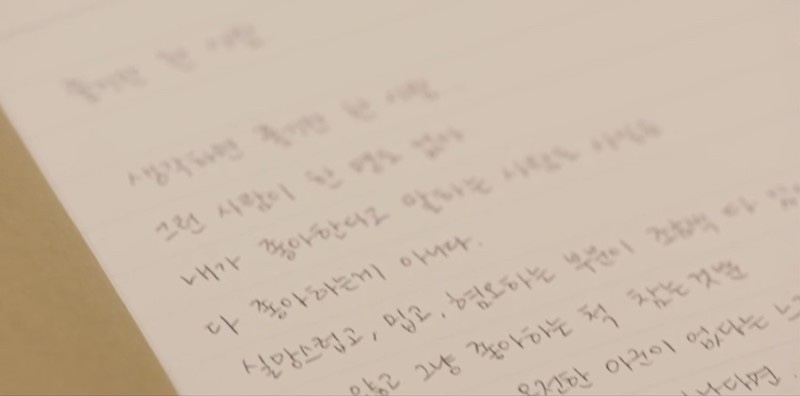 좋기만 한 사람
생각하면 좋기만 한 사람
그런 사람이 한 명도 없다
내가 좋아한다고 말하는 사람도 사실은
다 좋아하는게 아니다.
실망스럽고, 밉고, 혐오하는 부분이 조금씩 다
않고 그냥 좋아하는 척 참는 것뿐
온전한 어른이 없다는